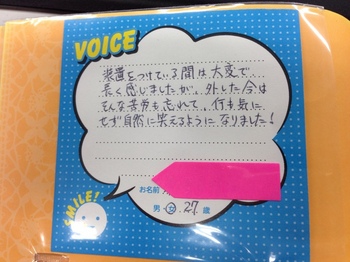 VOICE
装置をつけている間は大変で
長く感じましたが、外した今は
そんな苦労も忘れて、何も気に
せず自然に笑えるようになりました!
お名前
男・女 27歳
SMILE!